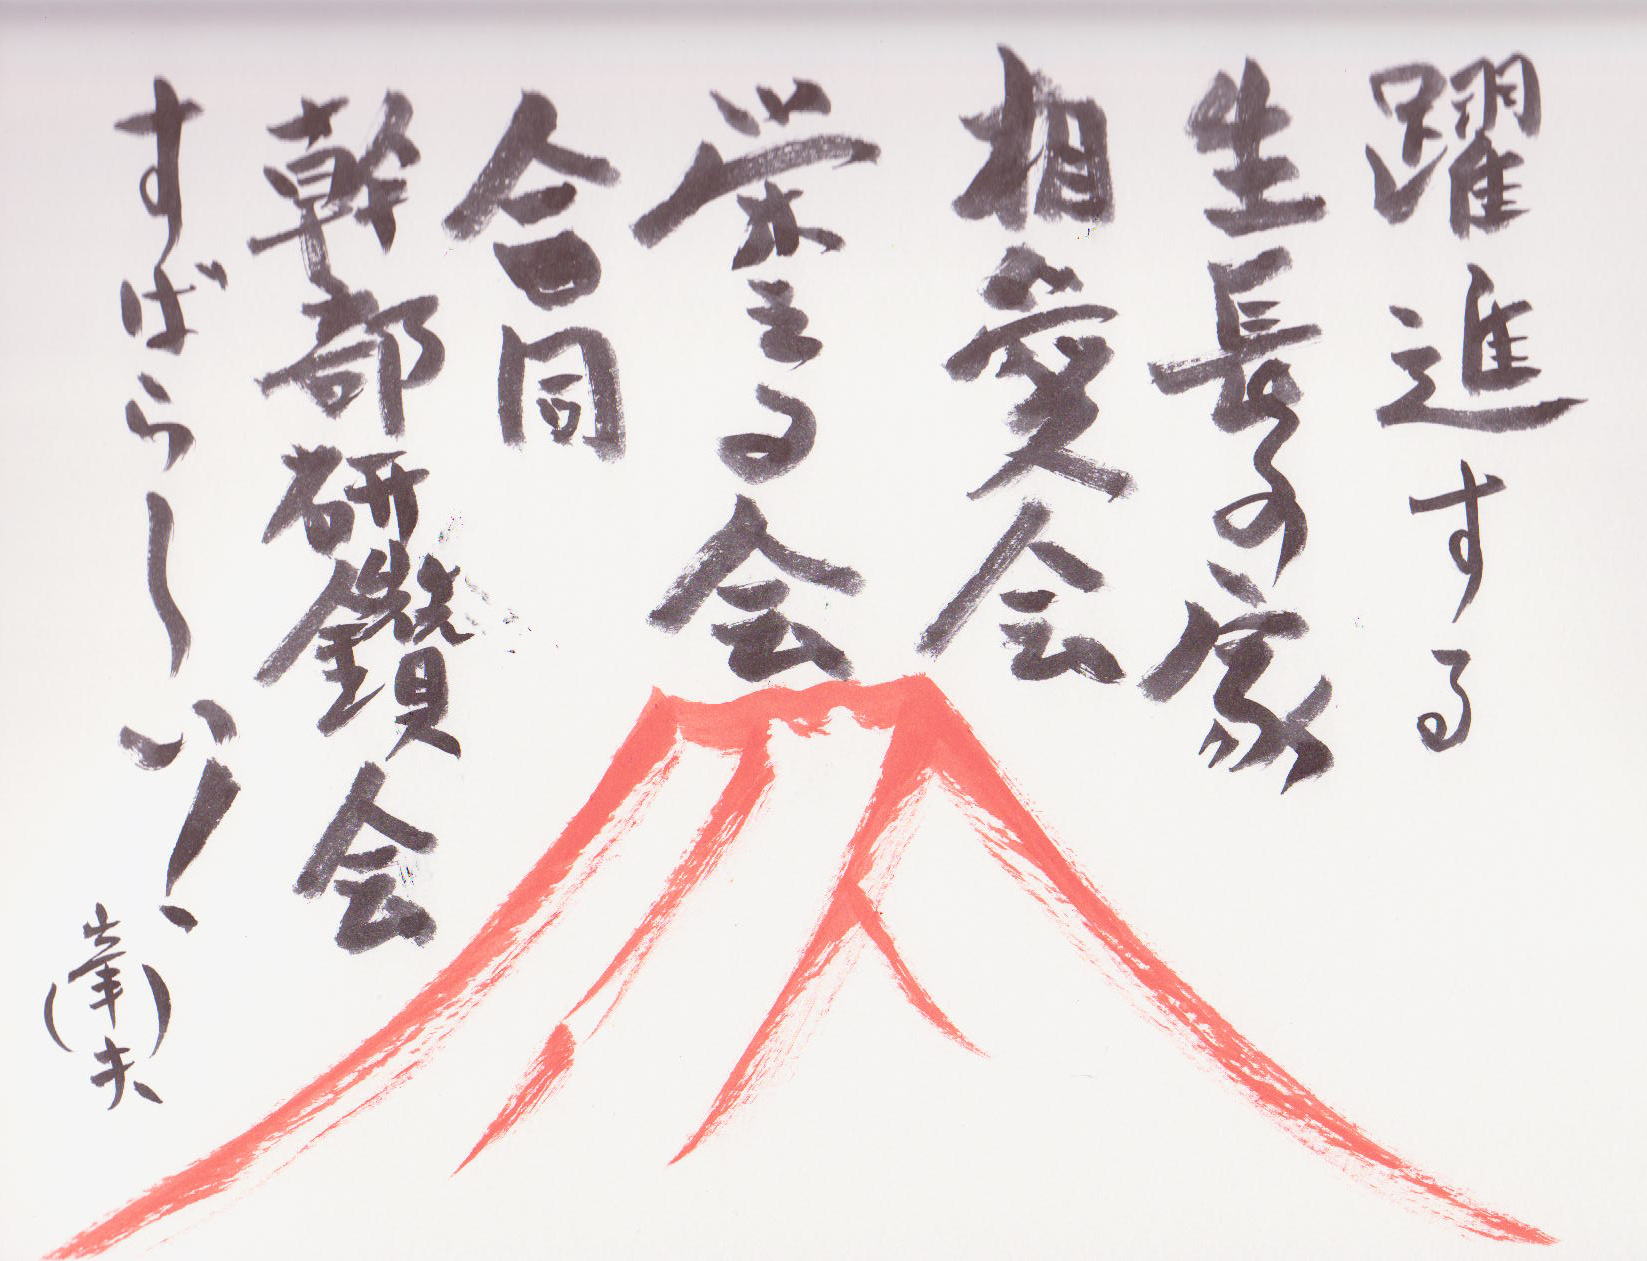 躍進する
生長の家
相愛会
栄える会
合同
幹部研鑽会
すばらしい!